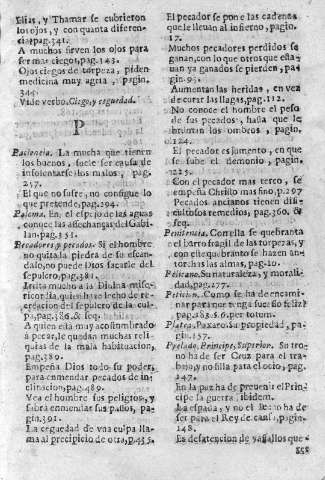 Elias, y Thamar se cubrieron
los ojos, y con quanta diferen-
cia, pag. 341.
A muchos sirven los ojos para
ser mas ciegos, pag. 143.
Ojos ciegos de torpeza, piden
medicina muy agria, pagin.
344.
Vide verbo. Ciego, y ceguedad.
P
Paciencia. La mucha que tienen
los buenos, suele ser causa de
insolentarse los malos, pag.
257.
El que no sufre, no consigue lo
que pretende, pag. 294.
Paloma. En el espejo de las aguas
conoce las assechanças del Gabi-
lan, pag. 351.
Pecadores y pecados. Si el hombre
no quita la piedra de su escan-
dalo, no puede Dios sacarle del
sepulcro, pag. 381.
Irrita mucho a la Divina mise-
ricordia, quien hace lecho de re-
creacion del sepulcro de la cul-
pa, pag. 386. & seq.
A quien està muy acostumbrado
à pecar, le quedan muchas reli-
quias de la mala habituacion,
pag. 389.
Empeña Dios todo su poder,
para enmendar pecados de in-
clinacion, pag. 489.
Vea el hombre sus peligros, y
sabrà enmendar sus passos, pa-
gin. 391.
La ceguedad de vna culpa lla-
ma al precipicio de otra, p. 435.
El pecador se pone las cadenas
que le lleuan al infierno, pagin.
17.
Muchos pecadores perdidos se
ganan, con lo que otros que esta-
uan ya ganados se pierden, pa-
gin. 95.
Aumentan las heridas, en vez
de cortar las llagas, pag. 112.
No conoce el hombre el peso
de sus pecados, hasta que le
bruman los ombros, pagin.
124.
El pecador es jumento, en que
se sube el demonio, pagin.
125.
Con el pecador mas terco, se
empeña Christo mas fino, p. 297
Pecados ancianos tienen difi-
cultosos remedios, pag. 360. &
seq.
Penitencia. Con ella se quebranta
el barro fragil de las torpezas, y
con el quebranto se hazen an-
torchas las almas, pag. 20.
Pelicano. Su naturaleza, y morali-
dad, pag. 277.
Peticion. Como se ha de encami-
nar para que tenga sucesso feliz?
pag. 183. §. 6. per totum.
Platea. Paxaro. Su propiedad, pa-
gin. 157.
Prelado, Principe, Superior. Su tro-
no ha de ser Cruz para el tra-
bajo, y no silla para el ocio, pag.
247.
En la paz ha de preuenir el Prin-
cipe la guerra, ibidem.
La espada, y no el ha de
ser para el Rey de pagin.
148.
Es desatencion de vassallos que